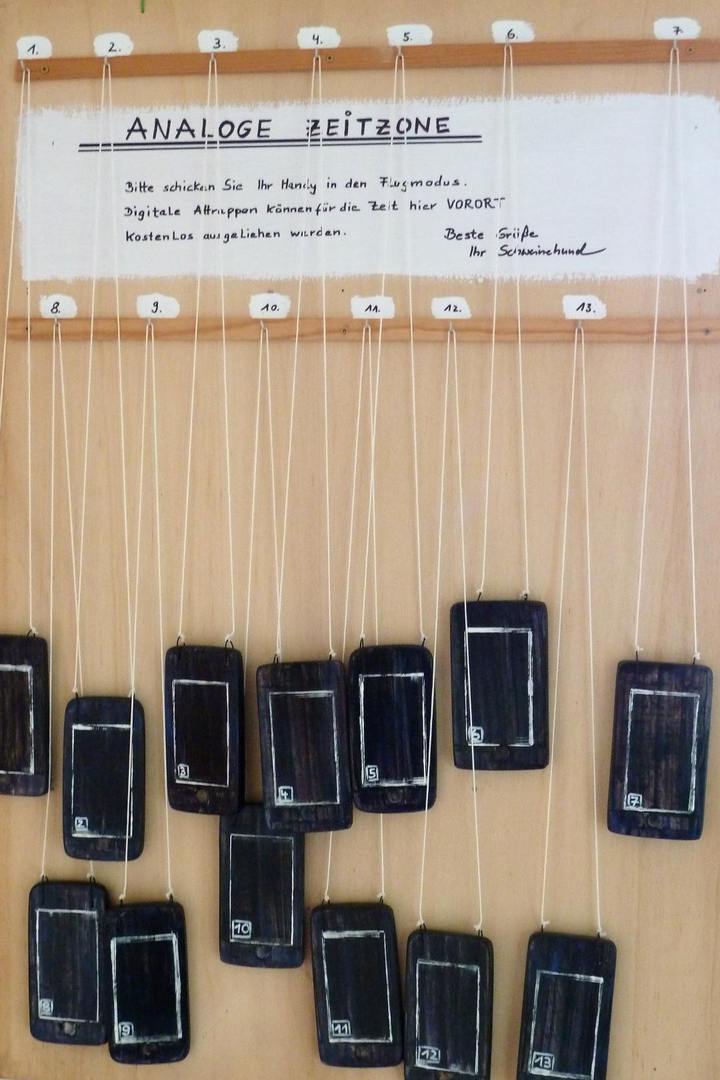 1. 2. 3. 4. 5. 6. 7.
ANALOGE ZEITZONE
Bitte schicken Sie Ihr Handy in den Flugmodus.
Digitale Attrappen können für die Zeit hier VORORT
kostenlos ausgeliehen wurden.
Beste Grüße
Ihr Schweinehund
8. 9. 10. 11. 12. 13.
6
3
4
5
7
2
10
8
9
11
12
13